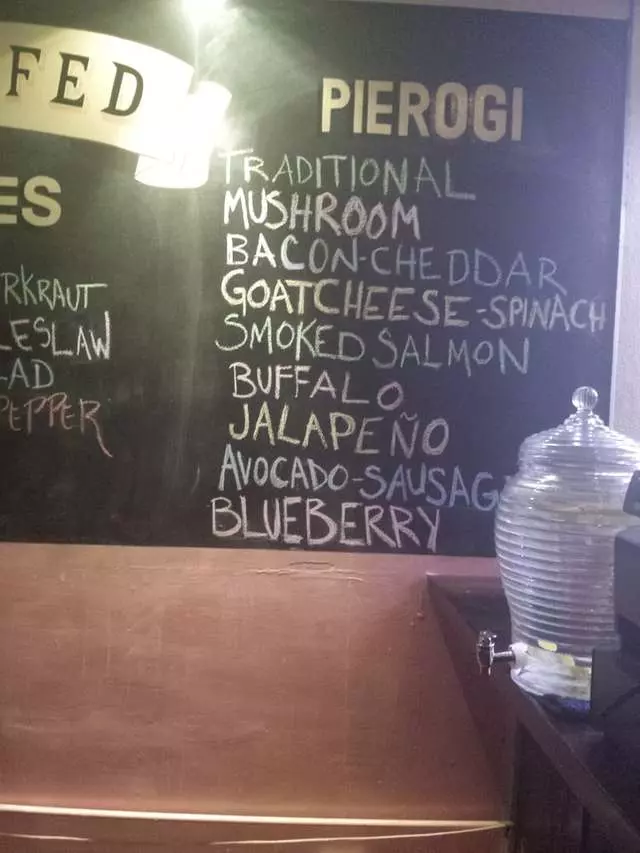 FED
ES
RKRAUT
LESLAW
AD
PEPPER
PIEROGI
TRADITIONAL
MUSHROOM
BACON-CHEDDAR
GOATCHEESE-SPINACH
SMOKED SALMON
BUFFALO
JALAPEÑO
AVOCADO-SAUSAG
BLUEBERRY